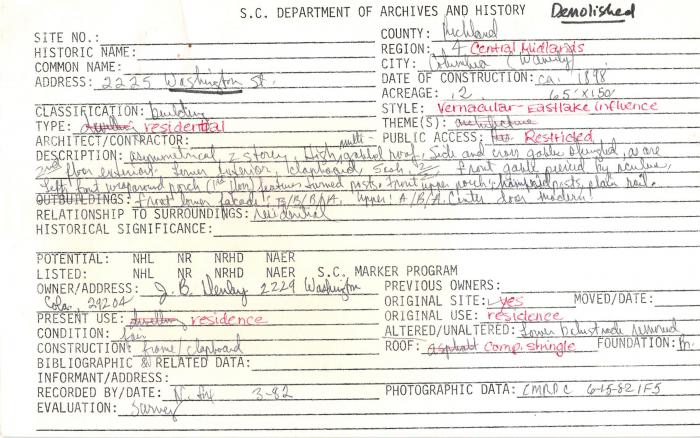 S.C. DEPARTMENT OF ARCHIVES AND HISTORY Demolished
SITE NO.: COUNTY: Richland
HISTORIC NAME: REGION: 4 Central Midlands
COMMON NAME: CITY: Columbia (Waverly)
ADDRESS: 2225 Washington St. DATE OF CONSTRUCTION: ca. 1898
ACREAGE: .2 65'X150'
CLASSIFICATION: building STYLE: Vernacular-Eastlake influence
TYPE: dwelling residential THEME(S): architecture
ARCHITECT/CONTRACTOR: PUBLIC ACCESS: Restricted
DESCRIPTION: asymmetrical, 2 storey, High, multi-gabled roof, Side and cross gables shingled, as are
2nd floor exterior. Lower exterior, clapboard. Front gable pierced by
Left front wraparound porch (1st floor) features turned posts, front upper porch, posts, plain rail.
OUTBUILDINGS: Front lower facade: B/B/B/A. Upper: A/B/A. Center door modern.
RELATIONSHIP TO SURROUNDINGS: residential
HISTORICAL SIGNIFICANCE:
POTENTIAL: NHL NR NRHD NAER
LISTED: NHL NR NRHD NAER S.C. MARKER PROGRAM
OWNER/ADDRESS: J.B. 2229 Washington PREVIOUS OWNERS:
Cola. 29204 ORIGINAL SITE: yes MOVED/DATE:
PRESENT USE: dwelling residence ORIGINAL USE: residence
CONDITION: fair ALTERED/UNALTERED: Lower balustrade removed
CONSTRUCTION: frame/clapboard ROOF: asphalt comp. shingle FOUNDATION: Br.
BIBLIOGRAPHIC & RELATED DATA:
INFORMANT/ADDRESS:
RECORDED BY/DATE: N. Fox 3-82 PHOTOGRAPHIC DATA: CMRPC 6-15-82 1F5
EVALUATION: Survey